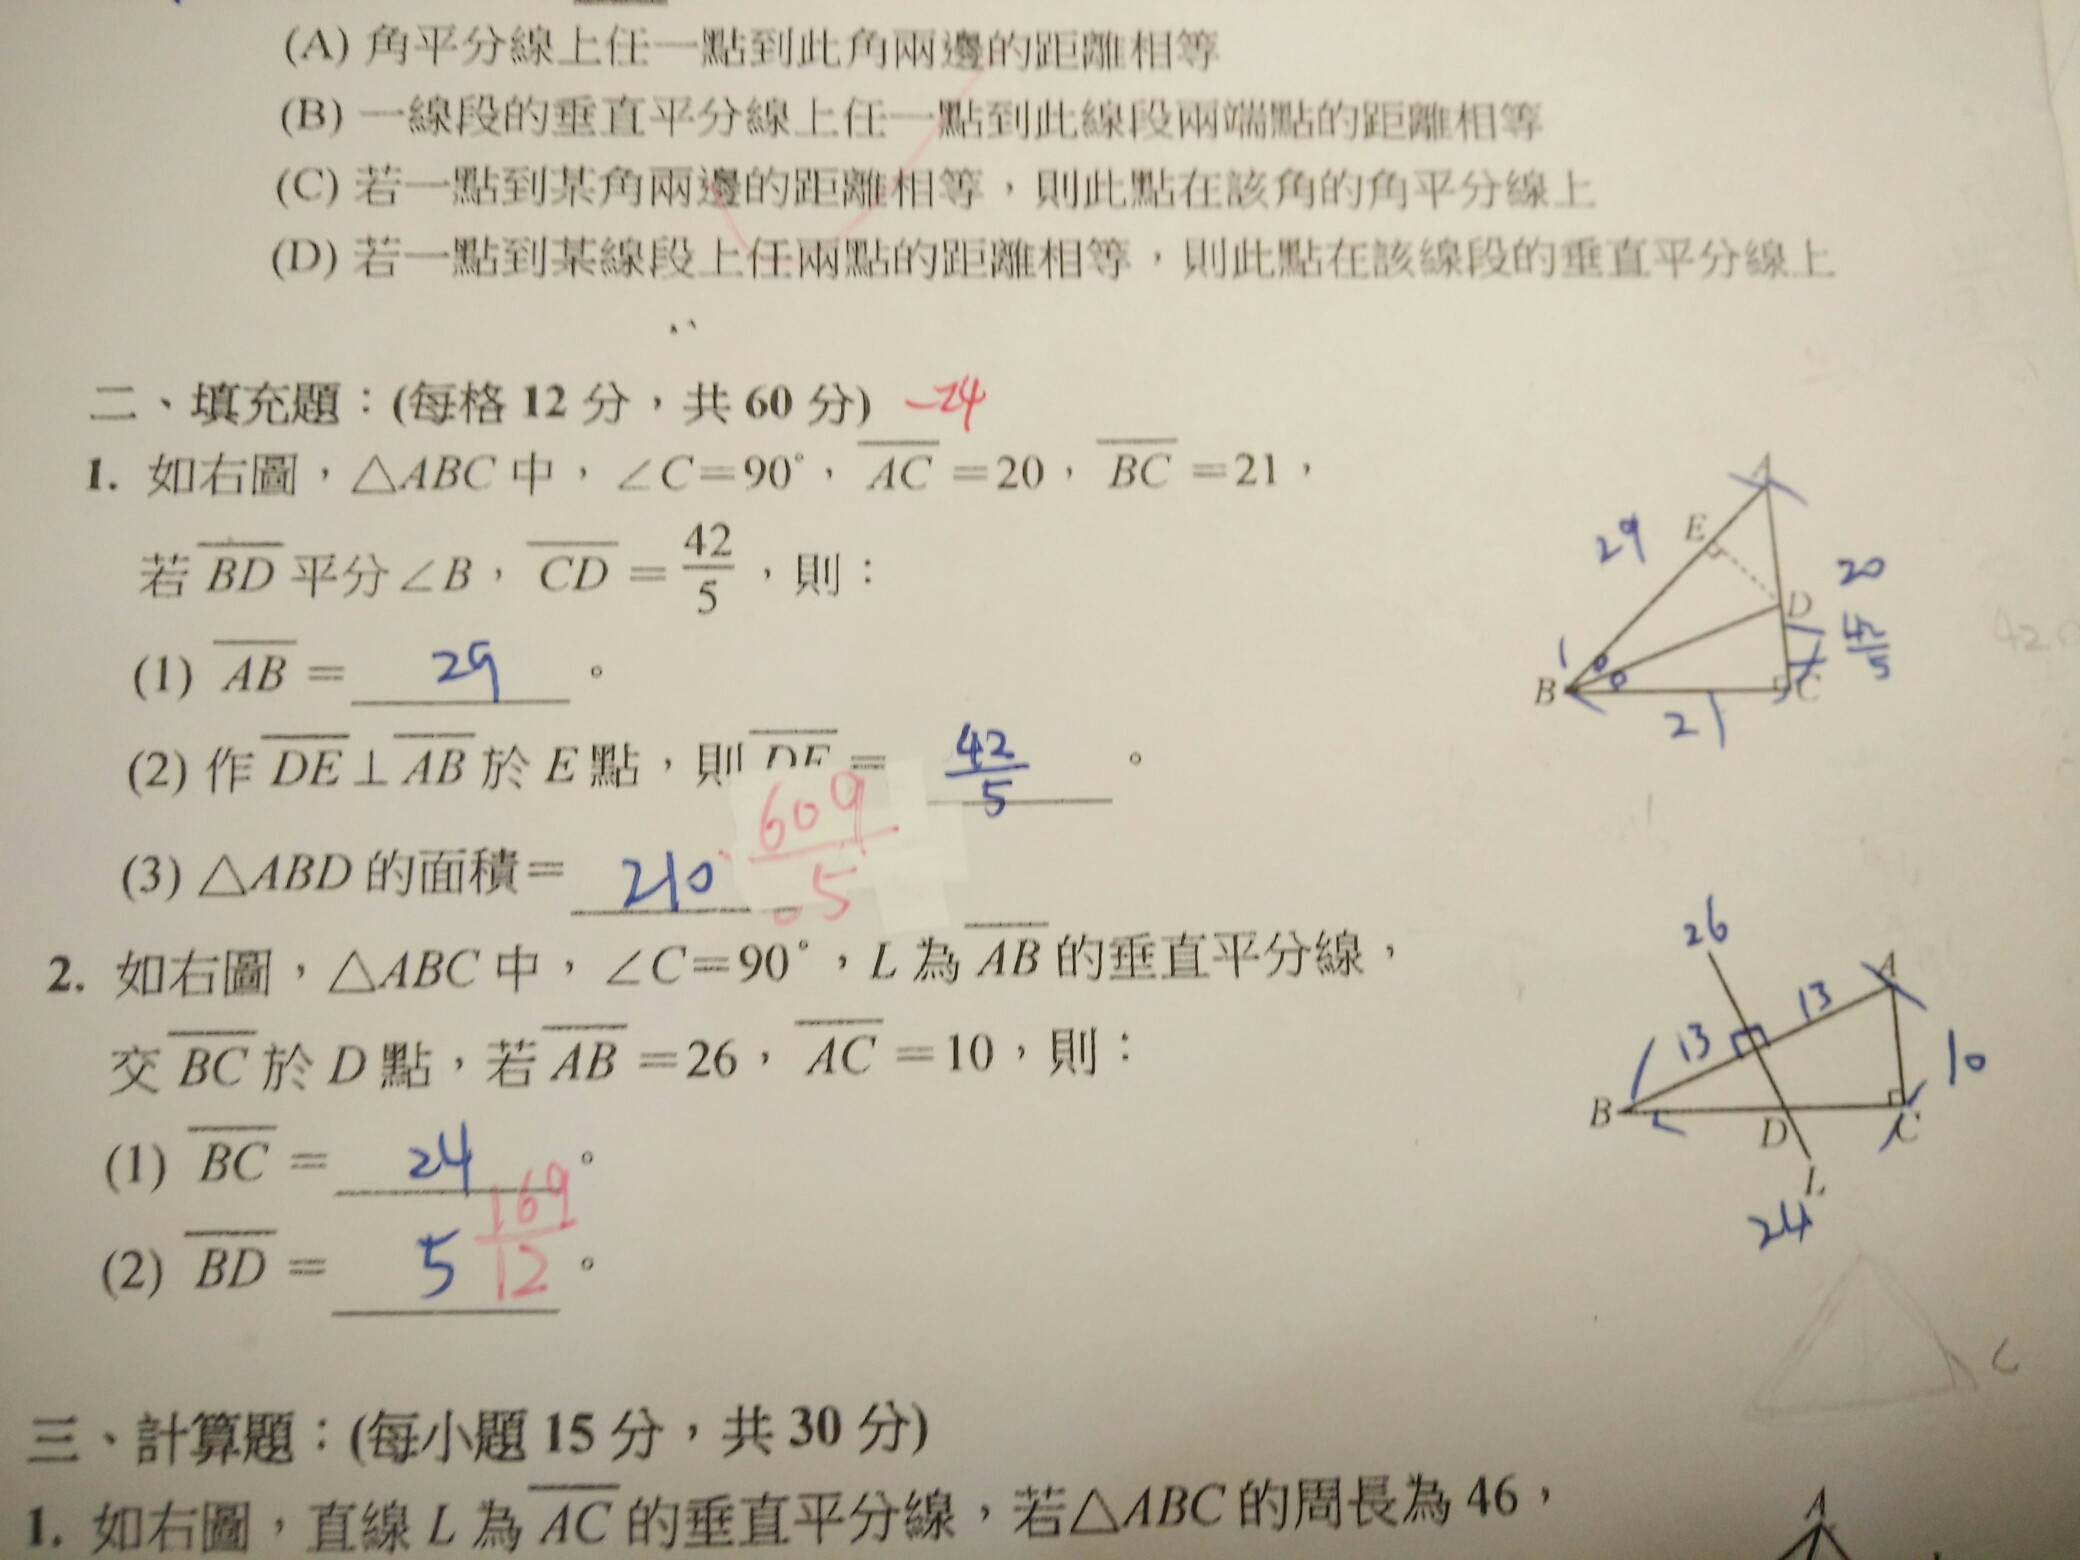 (A) 角平分線上任一點到此角兩邊的距離相等
(B) 一線段的垂直平分線上任一點到此線段兩端點的距離相等
(C) 若一點到某角兩邊的距離相等，則此點在該角的角平分線上
(D) 若一點到某線段上任兩點的距離相等，則此點在該線段的垂直平分線上
二、填充題：(每格 12 分，共 60 分) -24
1. 如右圖，△ABC 中，∠C=90°，AC=20，BC=21，
若 BD 平分∠B，CD=42/5，則：
(1) AB= 29 。
(2) 作 DE⊥AB 於 E 點，則 DE= 42/5 。
(3) △ABD 的面積= 210 609/5 。
A
E
29
20
D
42/5
B
C
21
2. 如右圖，△ABC 中，∠C=90°，L 為 AB 的垂直平分線，
交 BC 於 D 點，若 AB=26，AC=10，則：
(1) BC= 24 。
(2) BD= 5 169/12 。
26
A
13
13
10
B
D
C
L
24
C
三、計算題：(每小題 15 分，共 30 分)
1. 如右圖，直線 L 為 AC 的垂直平分線，若△ABC 的周長為 46，
A